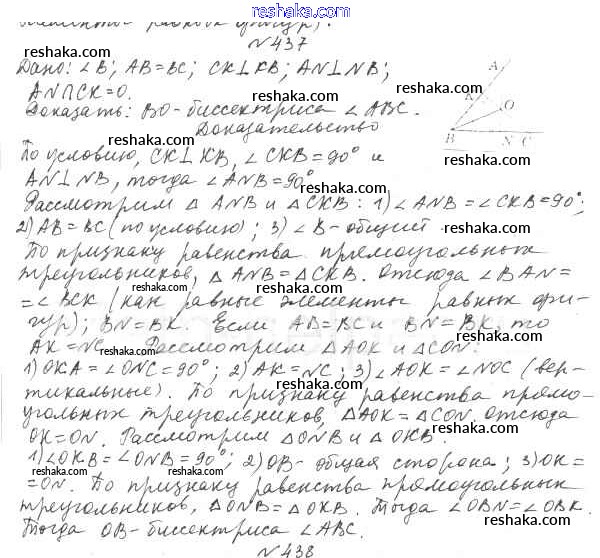 reshak.ru
элементы равных фигур).
№437
Дано: ∠B; AB=BC; CK⊥KB; AN⊥NB;
AN∩CK=O.
Доказать: BO-биссектриса ∠ABC.
Доказательство
A
K
O
B N C
По условию, CK⊥KB, ∠CKB=90° и
AN⊥NB, тогда ∠ANB=90°
Рассмотрим △ANB и △CKB: 1)∠ANB=∠CKB=90°;
2)AB=BC(по условию); 3)∠B-общий
По признаку равенства прямоугольных
треугольников, △ANB=△CKB. Отсюда ∠BAN=
=∠BCK (как равные элементы равных фи-
гур); BN=BK. Если AB=BC и BN=BK, то
AK=NC. Рассмотрим △AOK и △CON:
1)∠OKA=∠ONC=90°; 2)AK=NC; 3)∠AOK=∠NOC (вер-
тикальные). По признаку равенства прямо-
угольных треугольников, △AOK=△CON. Отсюда
OK=ON. Рассмотрим △ONB и △OKB.
1)∠OKB=∠ONB=90°; 2)OB-общая сторона; 3)OK=
=ON. По признаку равенства прямоугольных
треугольников, △ONB=△OKB. Тогда ∠OBN=∠OBK.
Тогда OB-биссектриса ∠ABC.
№438